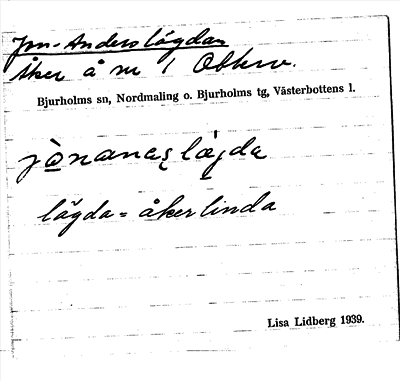 Jon-Anderslägdan
Åker å nr 1 Abborv.
Bjurholms sn, Nordmaling o. Bjurholms tg, Västerbottens l.
jònanasläjda
lägda = åkerlinda
Lisa Lidberg 1939.